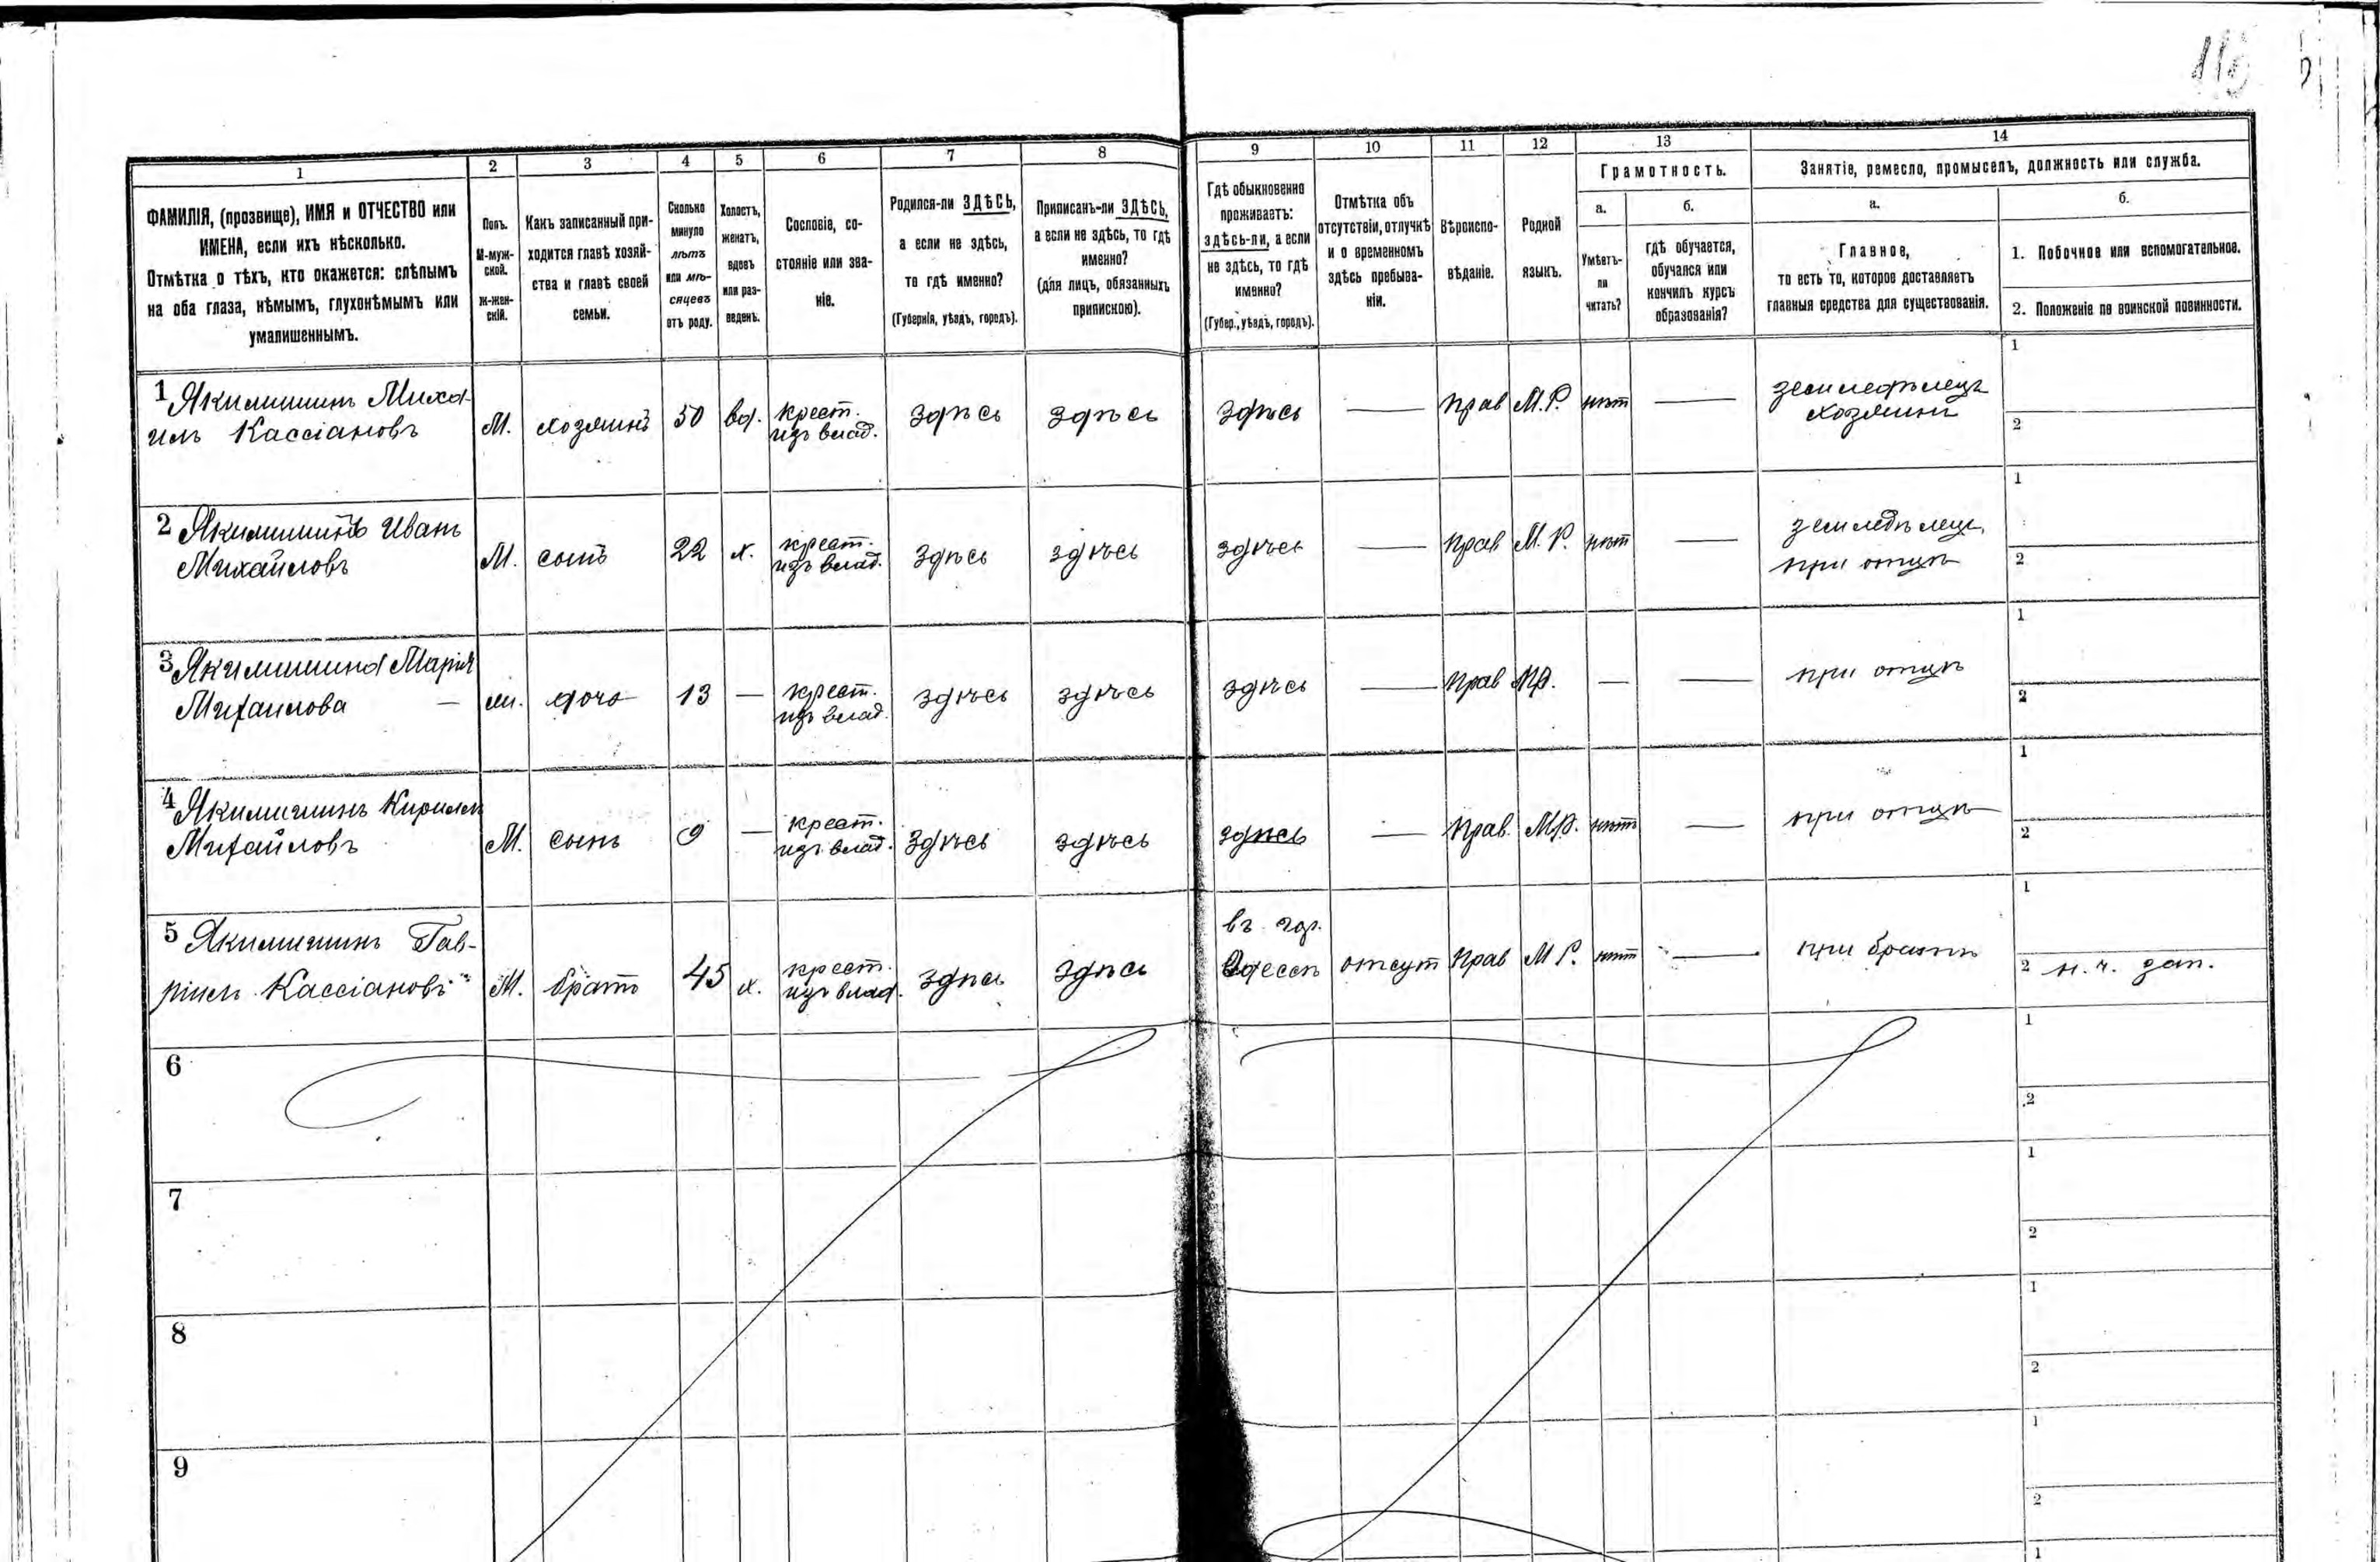 1
2
3
4
5
6
7
8
9
10
11
12
13
14
ФАМИЛІЯ, (прозвище), ИМЯ и ОТЧЕСТВО или
ИМЕНА, если ихъ нѣсколько.
Отмѣтка о тѣхъ, кто окажется: слѣпымъ
на оба глаза, нѣмымъ, глухонѣмымъ или
умалишеннымъ.
Полъ.
М-муж-
ской.
Ж-жен-
скій.
Какъ записанный при-
ходится главѣ хозяй-
ства и главѣ своей
семьи.
Сколько
минуло
лѣтъ
или мѣ-
сяцевъ
отъ роду.
Холостъ,
женатъ,
вдовъ
или раз-
веденъ.
Сословіе, со-
стояніе или зва-
ніе.
Родился-ли ЗДѢСЬ,
а если не здѣсь,
то гдѣ именно?
(Губернія, уѣздъ, городъ).
Приписанъ-ли ЗДѢСЬ,
а если не здѣсь, то гдѣ
именно?
(для лицъ, обязанныхъ
припискою).
Гдѣ обыкновенно
проживаетъ:
здѣсь-ли, а если
не здѣсь, то гдѣ
именно?
(Губер., уѣздъ, городъ).
Отмѣтка объ
отсутствіи, отлучкѣ
и о временномъ
здѣсь пребыва-
ніи.
Вѣроиспо-
вѣданіе.
Родной
языкъ.
Грамотность.
а.
Умѣетъ-
ли
читать?
б.
гдѣ обучается,
обучался или
кончилъ курсъ
образованія?
Занятіе, ремесло, промыселъ, должность или служба.
а.
Главное,
то есть то, которое доставляетъ
главныя средства для существованія.
б.
1. Побочное или вспомогательное.
2. Положеніе по воинской повинности.
1 Якимишинъ Миха-
илъ Кассіановъ
М. хозяинъ 50 вд. крест.
изъ влад.
здѣсь здѣсь здѣсь — прав М.Р. нѣт — земледѣлецъ
хозяинъ
1
2
2 Якимишинъ Иванъ
Михайловъ
М. сынъ 22 х. крест.
изъ влад.
здѣсь здѣсь здѣсь — прав М.Р. нѣт — земледѣлец,
при отцѣ
1
2
3 Якимишина Марія
Михаилова —
ж. дочь 13 — крест.
изъ влад.
здѣсь здѣсь здѣсь — прав МР. — — при отцѣ
1
2
4 Якимишинъ Кириллъ
Михайловъ
М. сынъ 9 — крест.
изъ влад.
здѣсь здѣсь здѣсь — прав. МР. нѣтъ — при отцѣ
1
2
5 Якимишинъ Гав-
ріилъ Кассіановъ
М. братъ 45 х. крест.
изъ влад.
здѣсь здѣсь въ гор.
Одессѣ отсут прав М Р. нѣт — при братѣ
1
2 н. ч. зап.
6
1
2
7
1
2
8
1
2
9
1
2
1